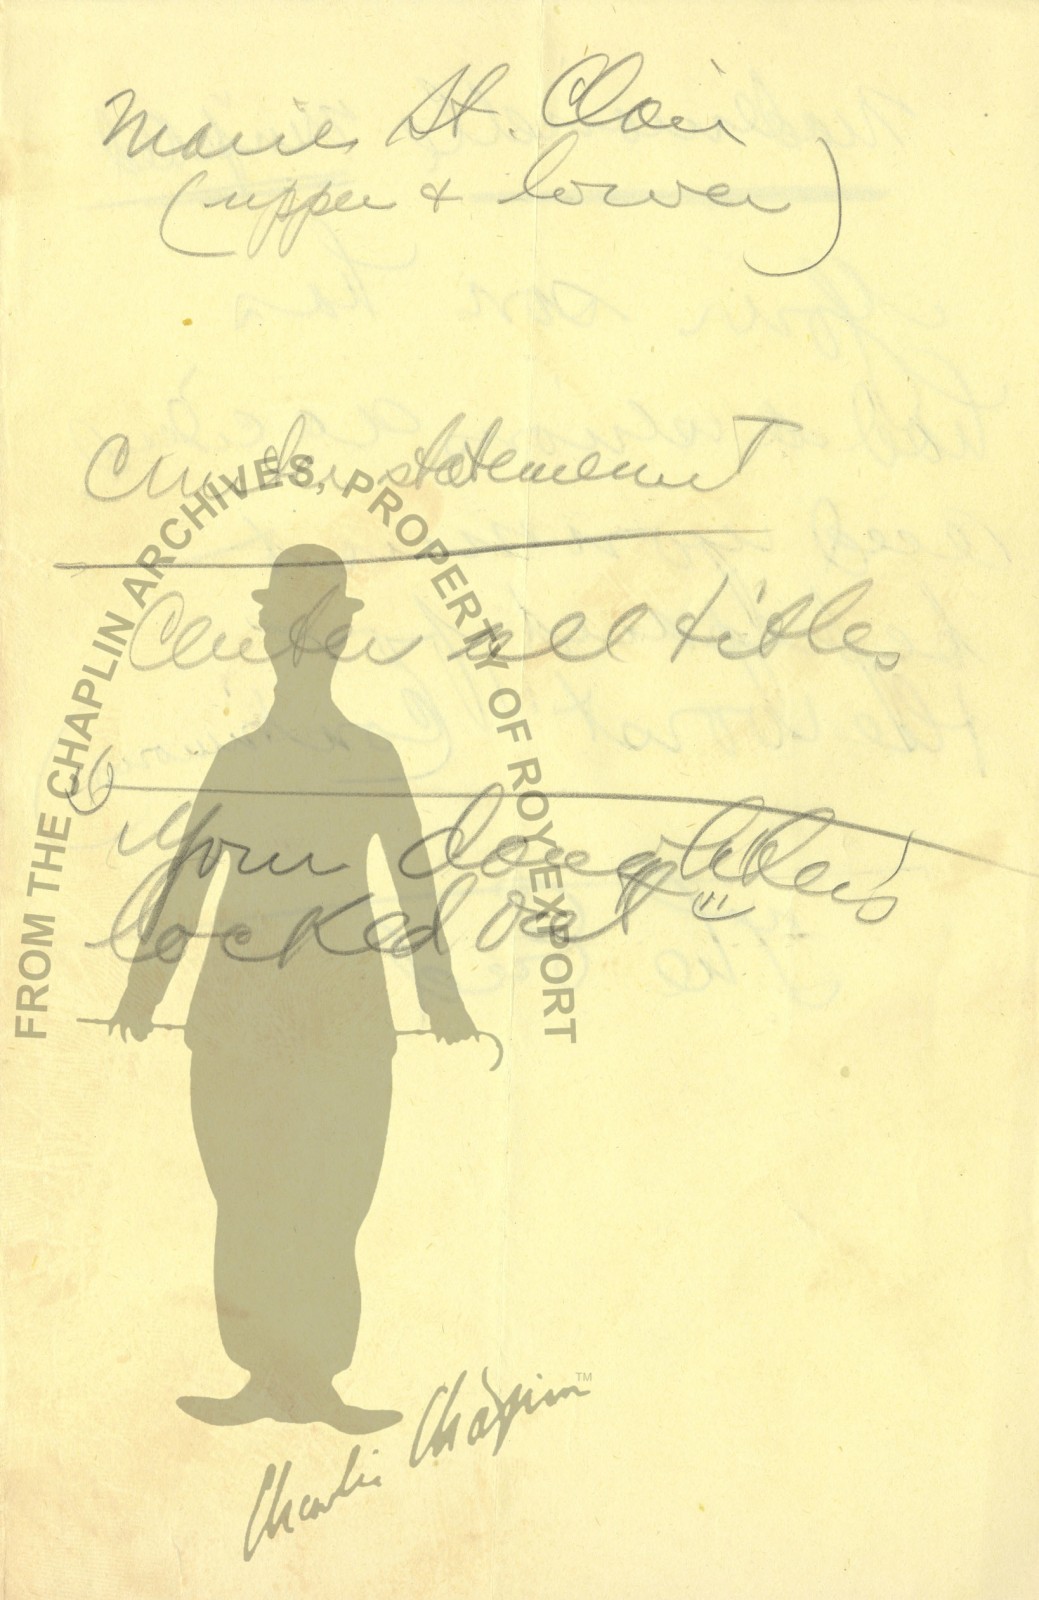 Marie St. Clair
(upper & lower)
Understatement
Center all titles
Your daughter's
locked out"
FROM THE CHAPLIN ARCHIVES, PROPERTY OF ROY EXPORT
Charlie Chaplin™